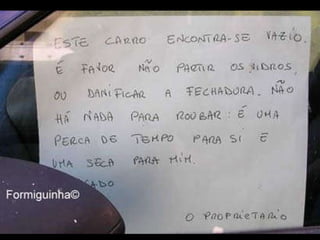 ESTE CARRO ENCONTRA-SE VAZIO.
É FAVOR NÃO PARTIR OS VIDROS,
OU DANIFICAR A FECHADURA. NÃO
HÁ NADA PARA ROUBAR: É UMA
PERCA DE TEMPO PARA SI E
UMA SECA PARA MIM.
GADO
O PROPRIETARIO
Formiguinha©